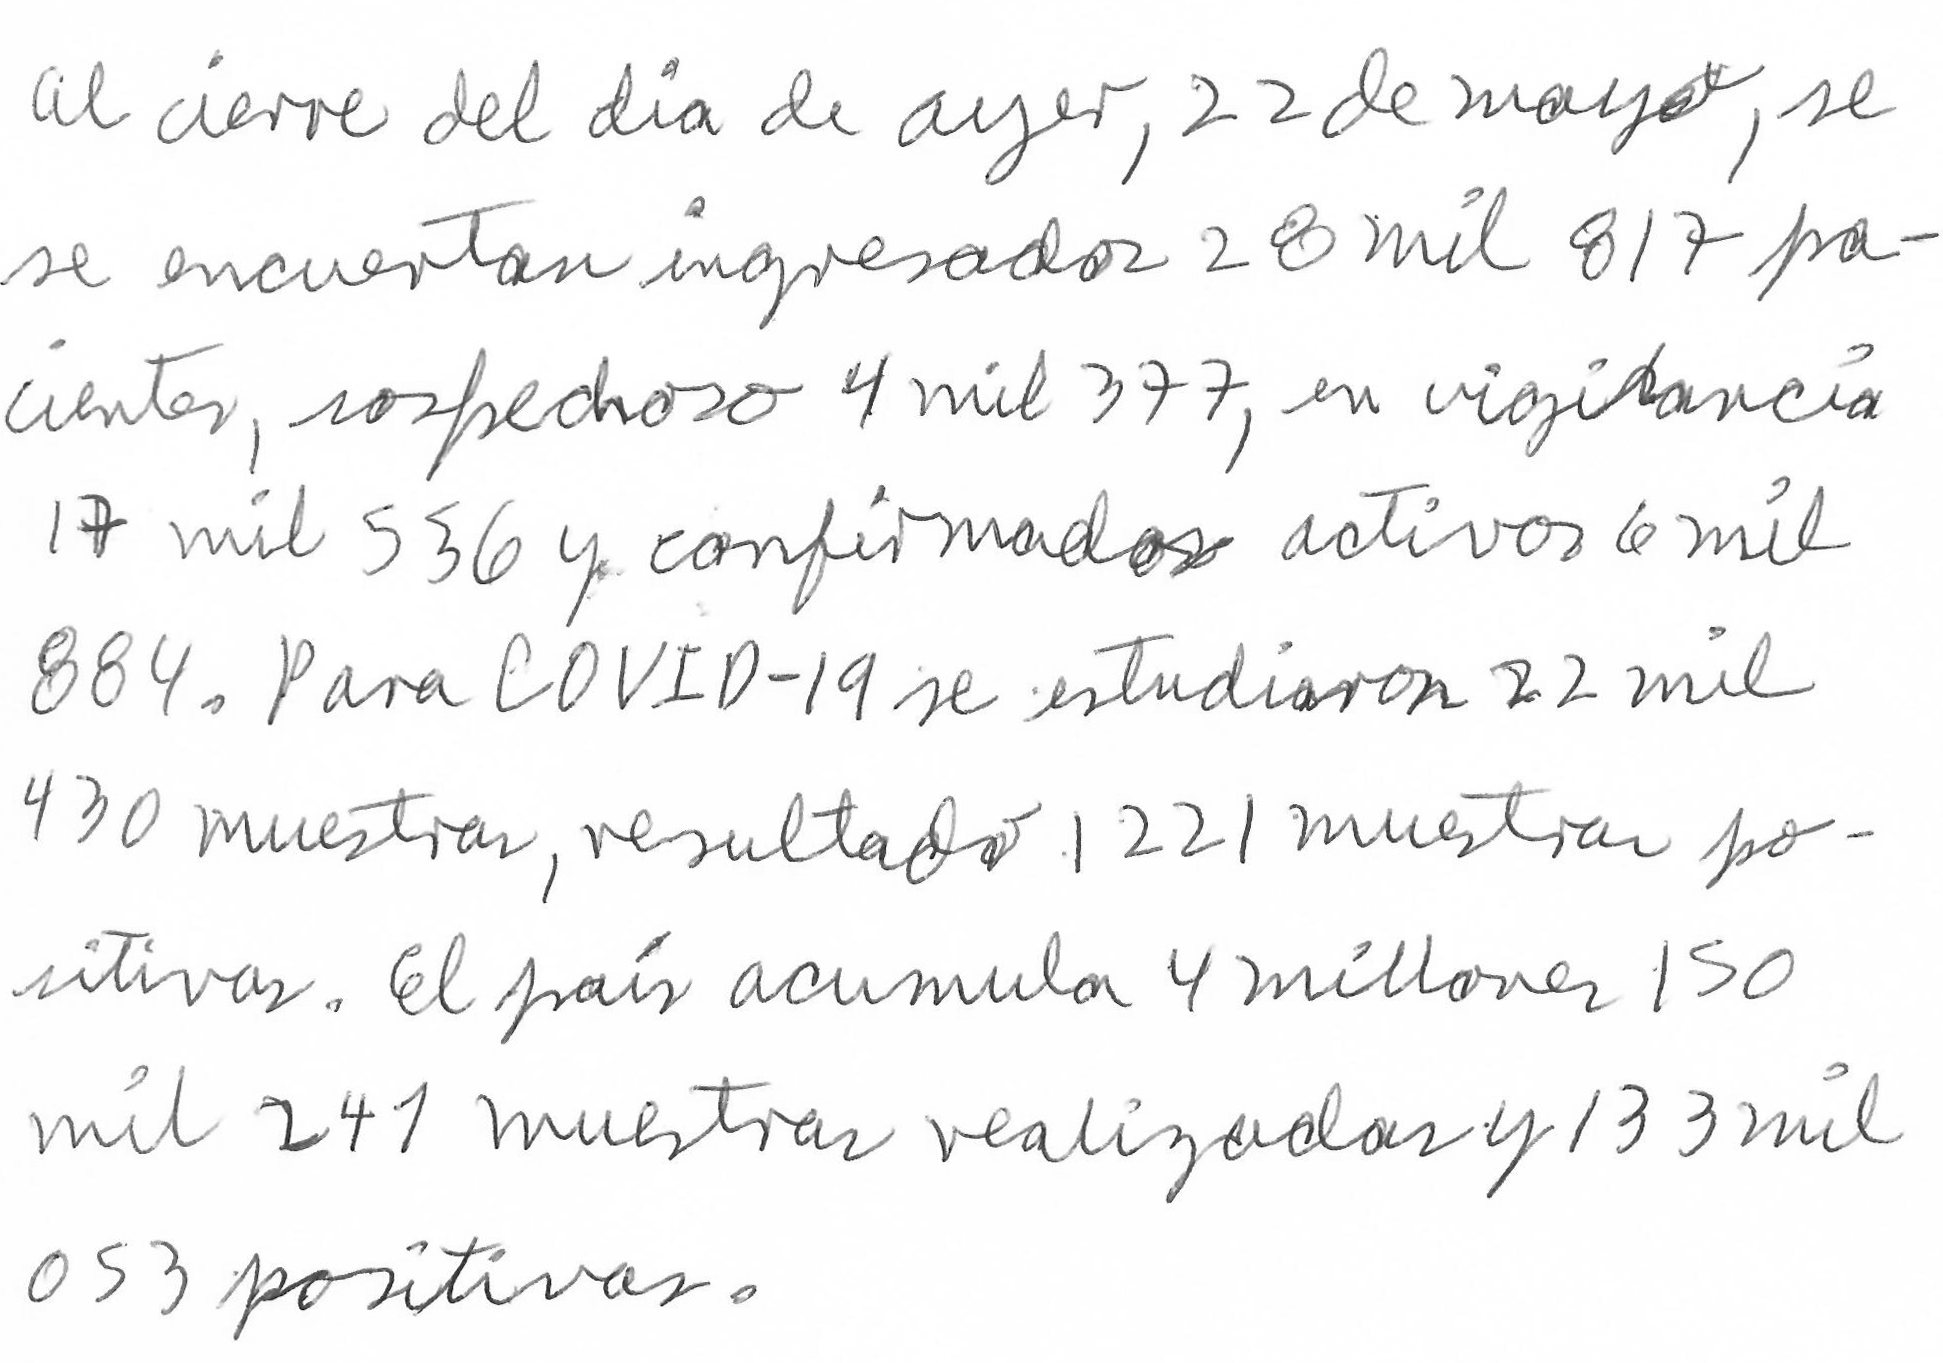 Al cierre del día de ayer, 22 de mayo, se
se encuertan ingresados 28 mil 817 pa-
cientes, sospechoso 4 mil 377, en vigilancia
17 mil 536 y confirmados activos 6 mil
884. Para COVID-19 se estudiaron 22 mil
430 muestras, resultado 1221 muestras po-
sitivas. El país acumula 4 millones 150
mil 241 muestras realizadas y 133 mil
053 positivas.